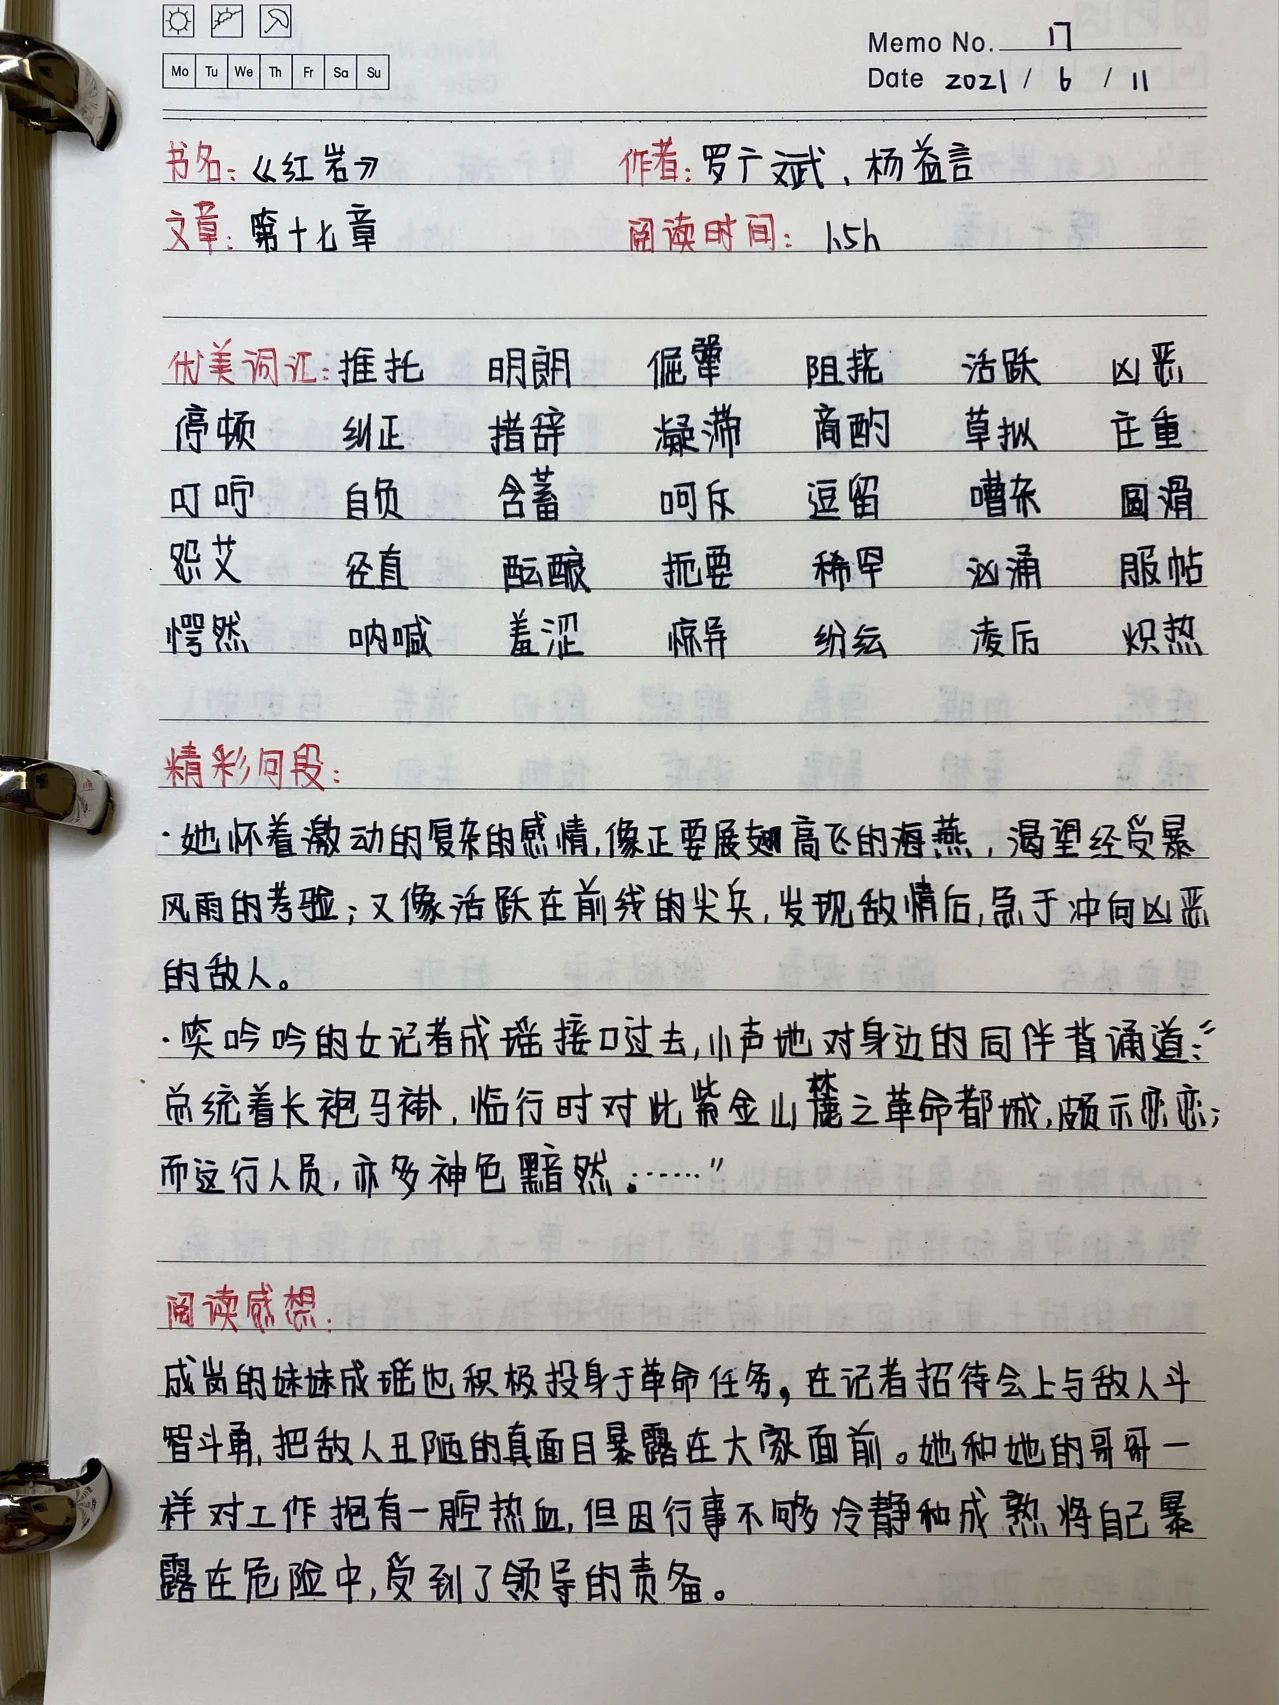 Memo No. 17
Mo Tu We Th Fr Sa Su
Date 2021 / 6 / 11
书名：《红岩》 作者：罗广斌、杨益言
文章：第十七章 阅读时间：1.5h
优美词汇：推托 明朗 倔犟 阻挠 活跃 凶恶
停顿 纠正 措辞 凝滞 商酌 草拟 庄重
叮咛 自负 含蓄 呵斥 逗留 嘈杂 圆滑
怨艾 径直 酝酿 扼要 稀罕 汹涌 服帖
愕然 呐喊 羞涩 惊异 纷纭 凌后 炽热
精彩句段：
·她怀着激动的复杂的感情，像正要展翅高飞的海燕，渴望经受暴
风雨的考验；又像活跃在前线的尖兵，发现敌情后，急于冲向凶恶
的敌人。
·笑吟吟的女记者成瑶接口过去，小声地对身边的同伴背诵道：“
总统着长袍马褂，临行时对此紫金山麓之革命都城，颇示恋恋；
而送行人员，亦多神色黯然。……”
阅读感想：
成岗的妹妹成瑶也积极投身于革命任务，在记者招待会上与敌人斗
智斗勇，把敌人丑陋的真面目暴露在大家面前。她和她的哥哥一
样对工作抱有一腔热血，但因行事不够冷静和成熟将自己暴
露在危险中，受到了领导的责备。